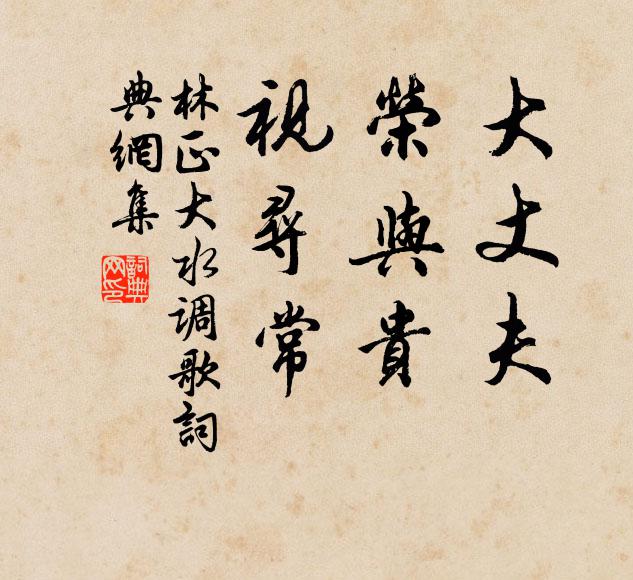 大丈夫
榮與貴
視尋常
林正大水调歌詞
典網集
詞典
网印